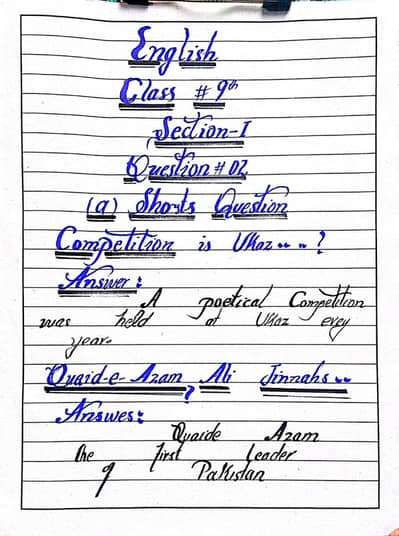 English
Class # 9th
Section-I
Question # 02
(a) Shorts Question
Competition is Ukaz.. .. ?
Answer:
A poetical Competition
was held at Ukaz evey
year.
Quaid-e-Azam, Ali Jinnahs ..
?
Answes:
Quaide Azam
the first leader
of Pakistan